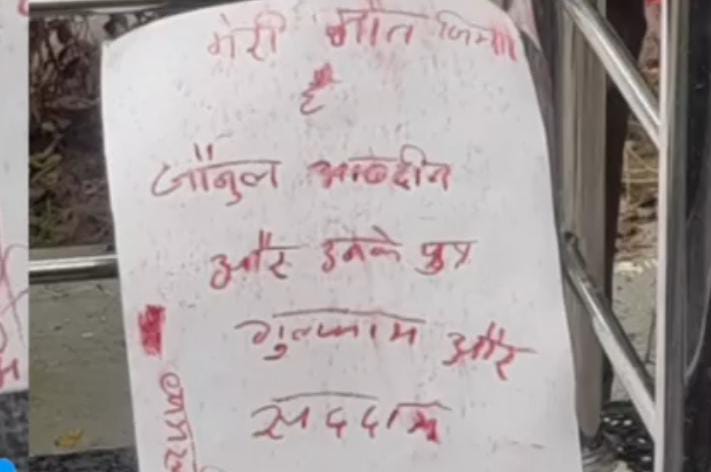 मेरी मौत
है
जैनुल आबेदीन
और उनके पुत्र
गुलफाम और
सददाम